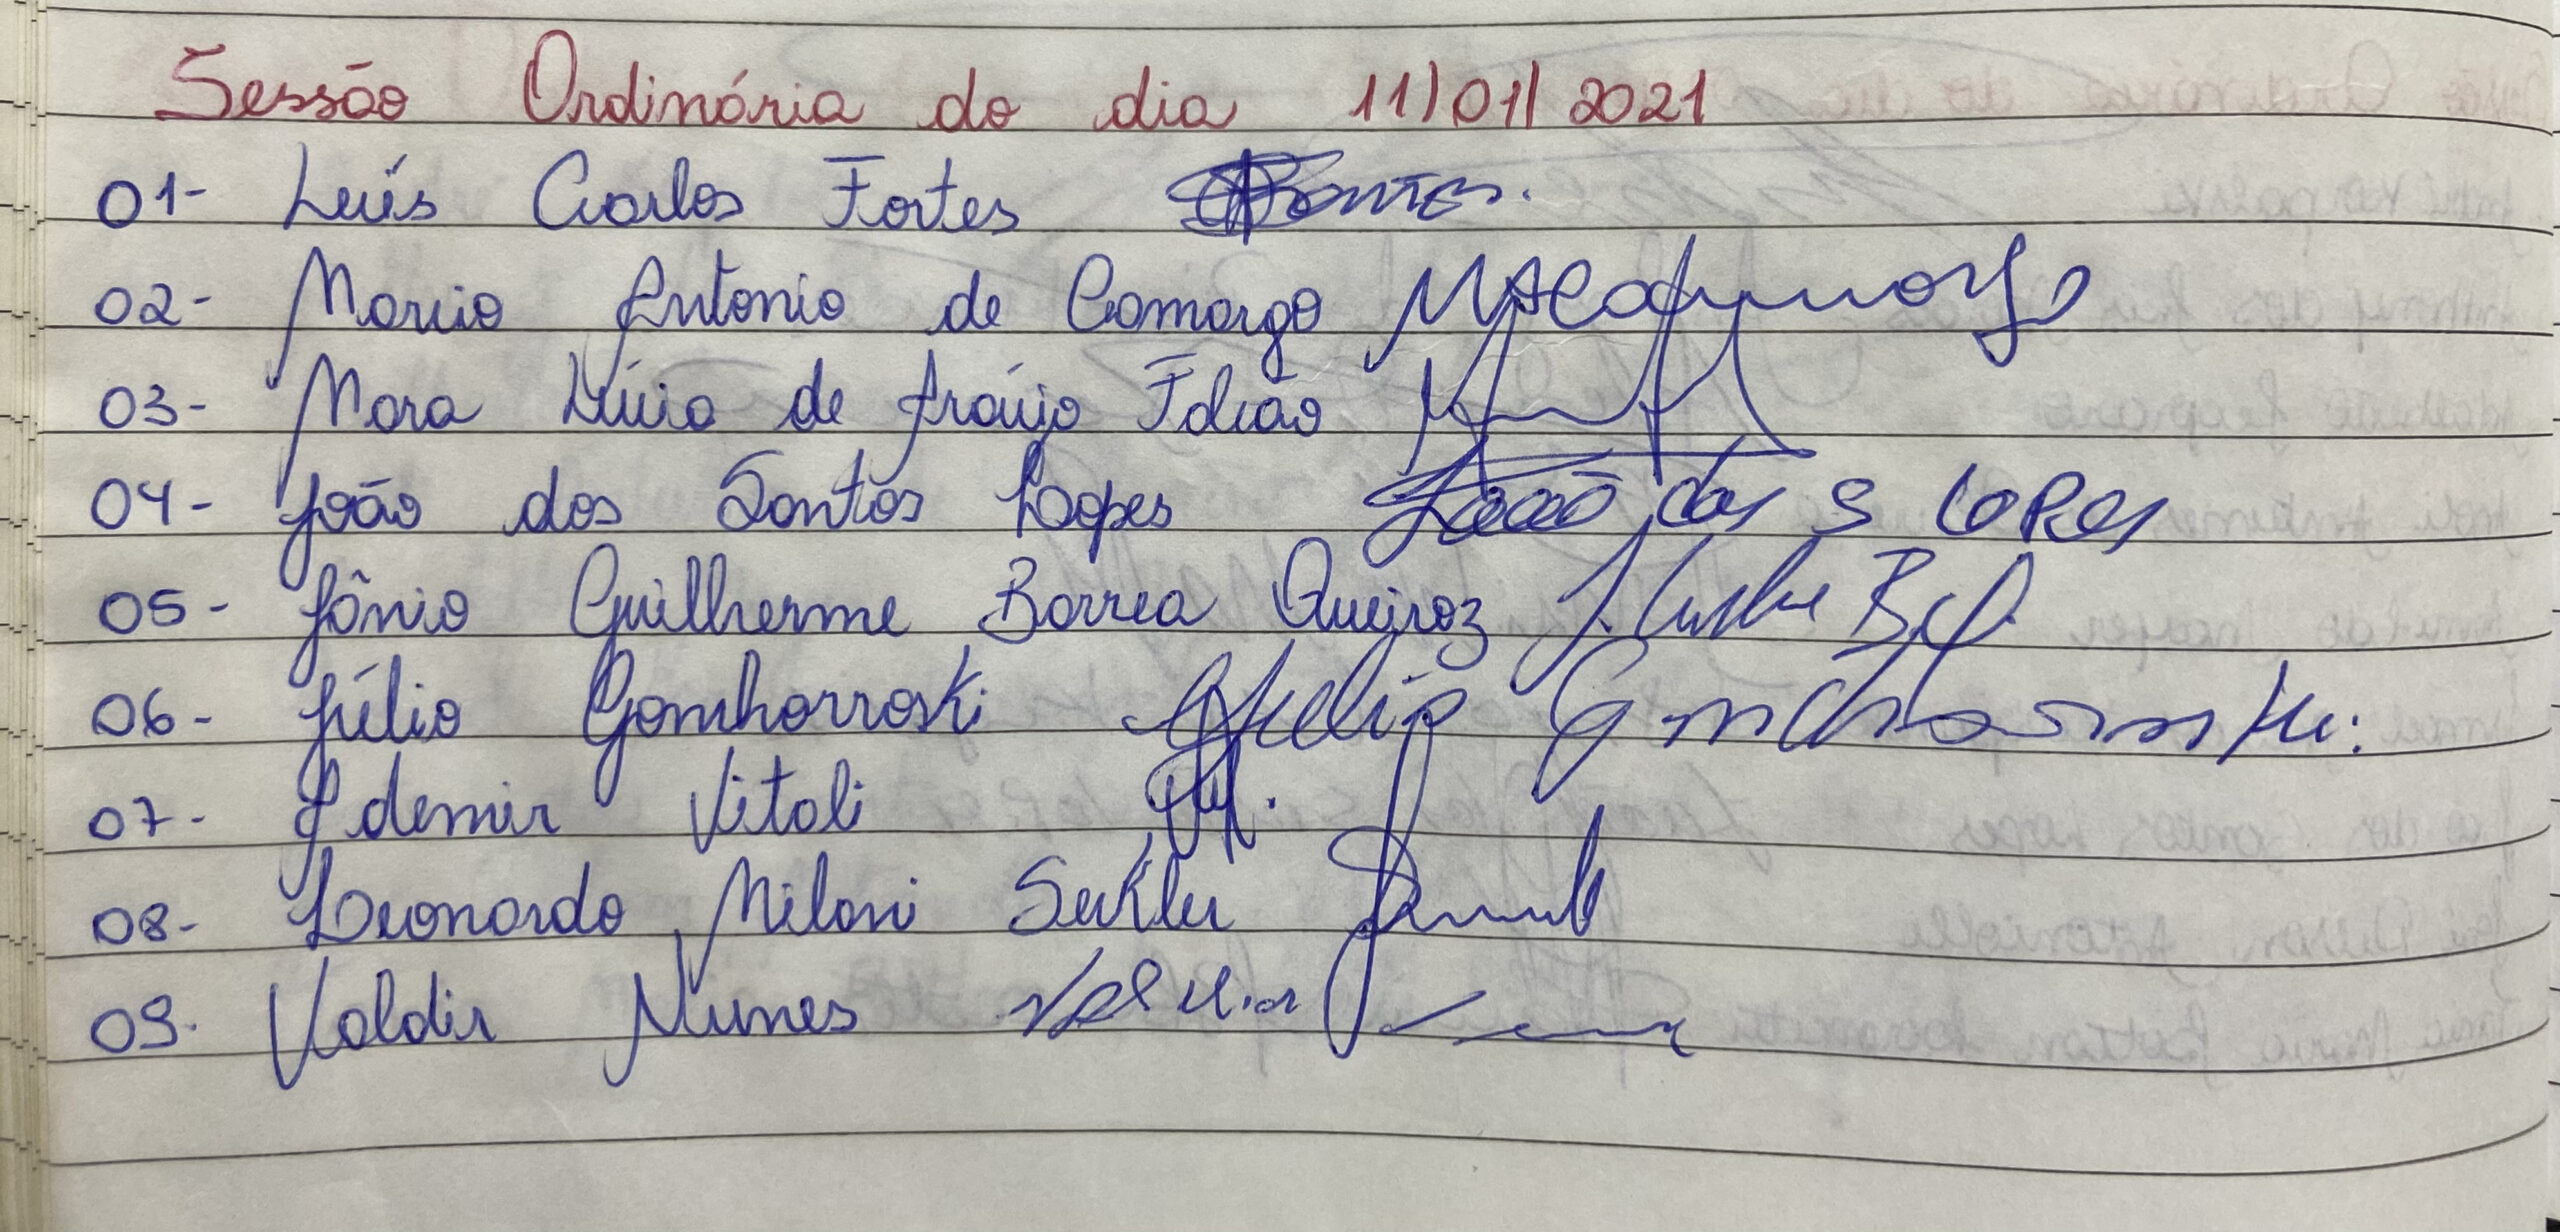 Sessão Ordinária do dia 11/01/2021
01- Luís Carlos Fortes
02- Marcio Antonio de Camargo
03- Mara Lúcia de Araújo Falcão
04- João dos Santos Lopes João dos S Lopes
05- Jônio Guilherme Barrea Queiroz
06- Júlio
07- Ademir Vitali
08- Leonardo Milani
09- Valdir Nunes